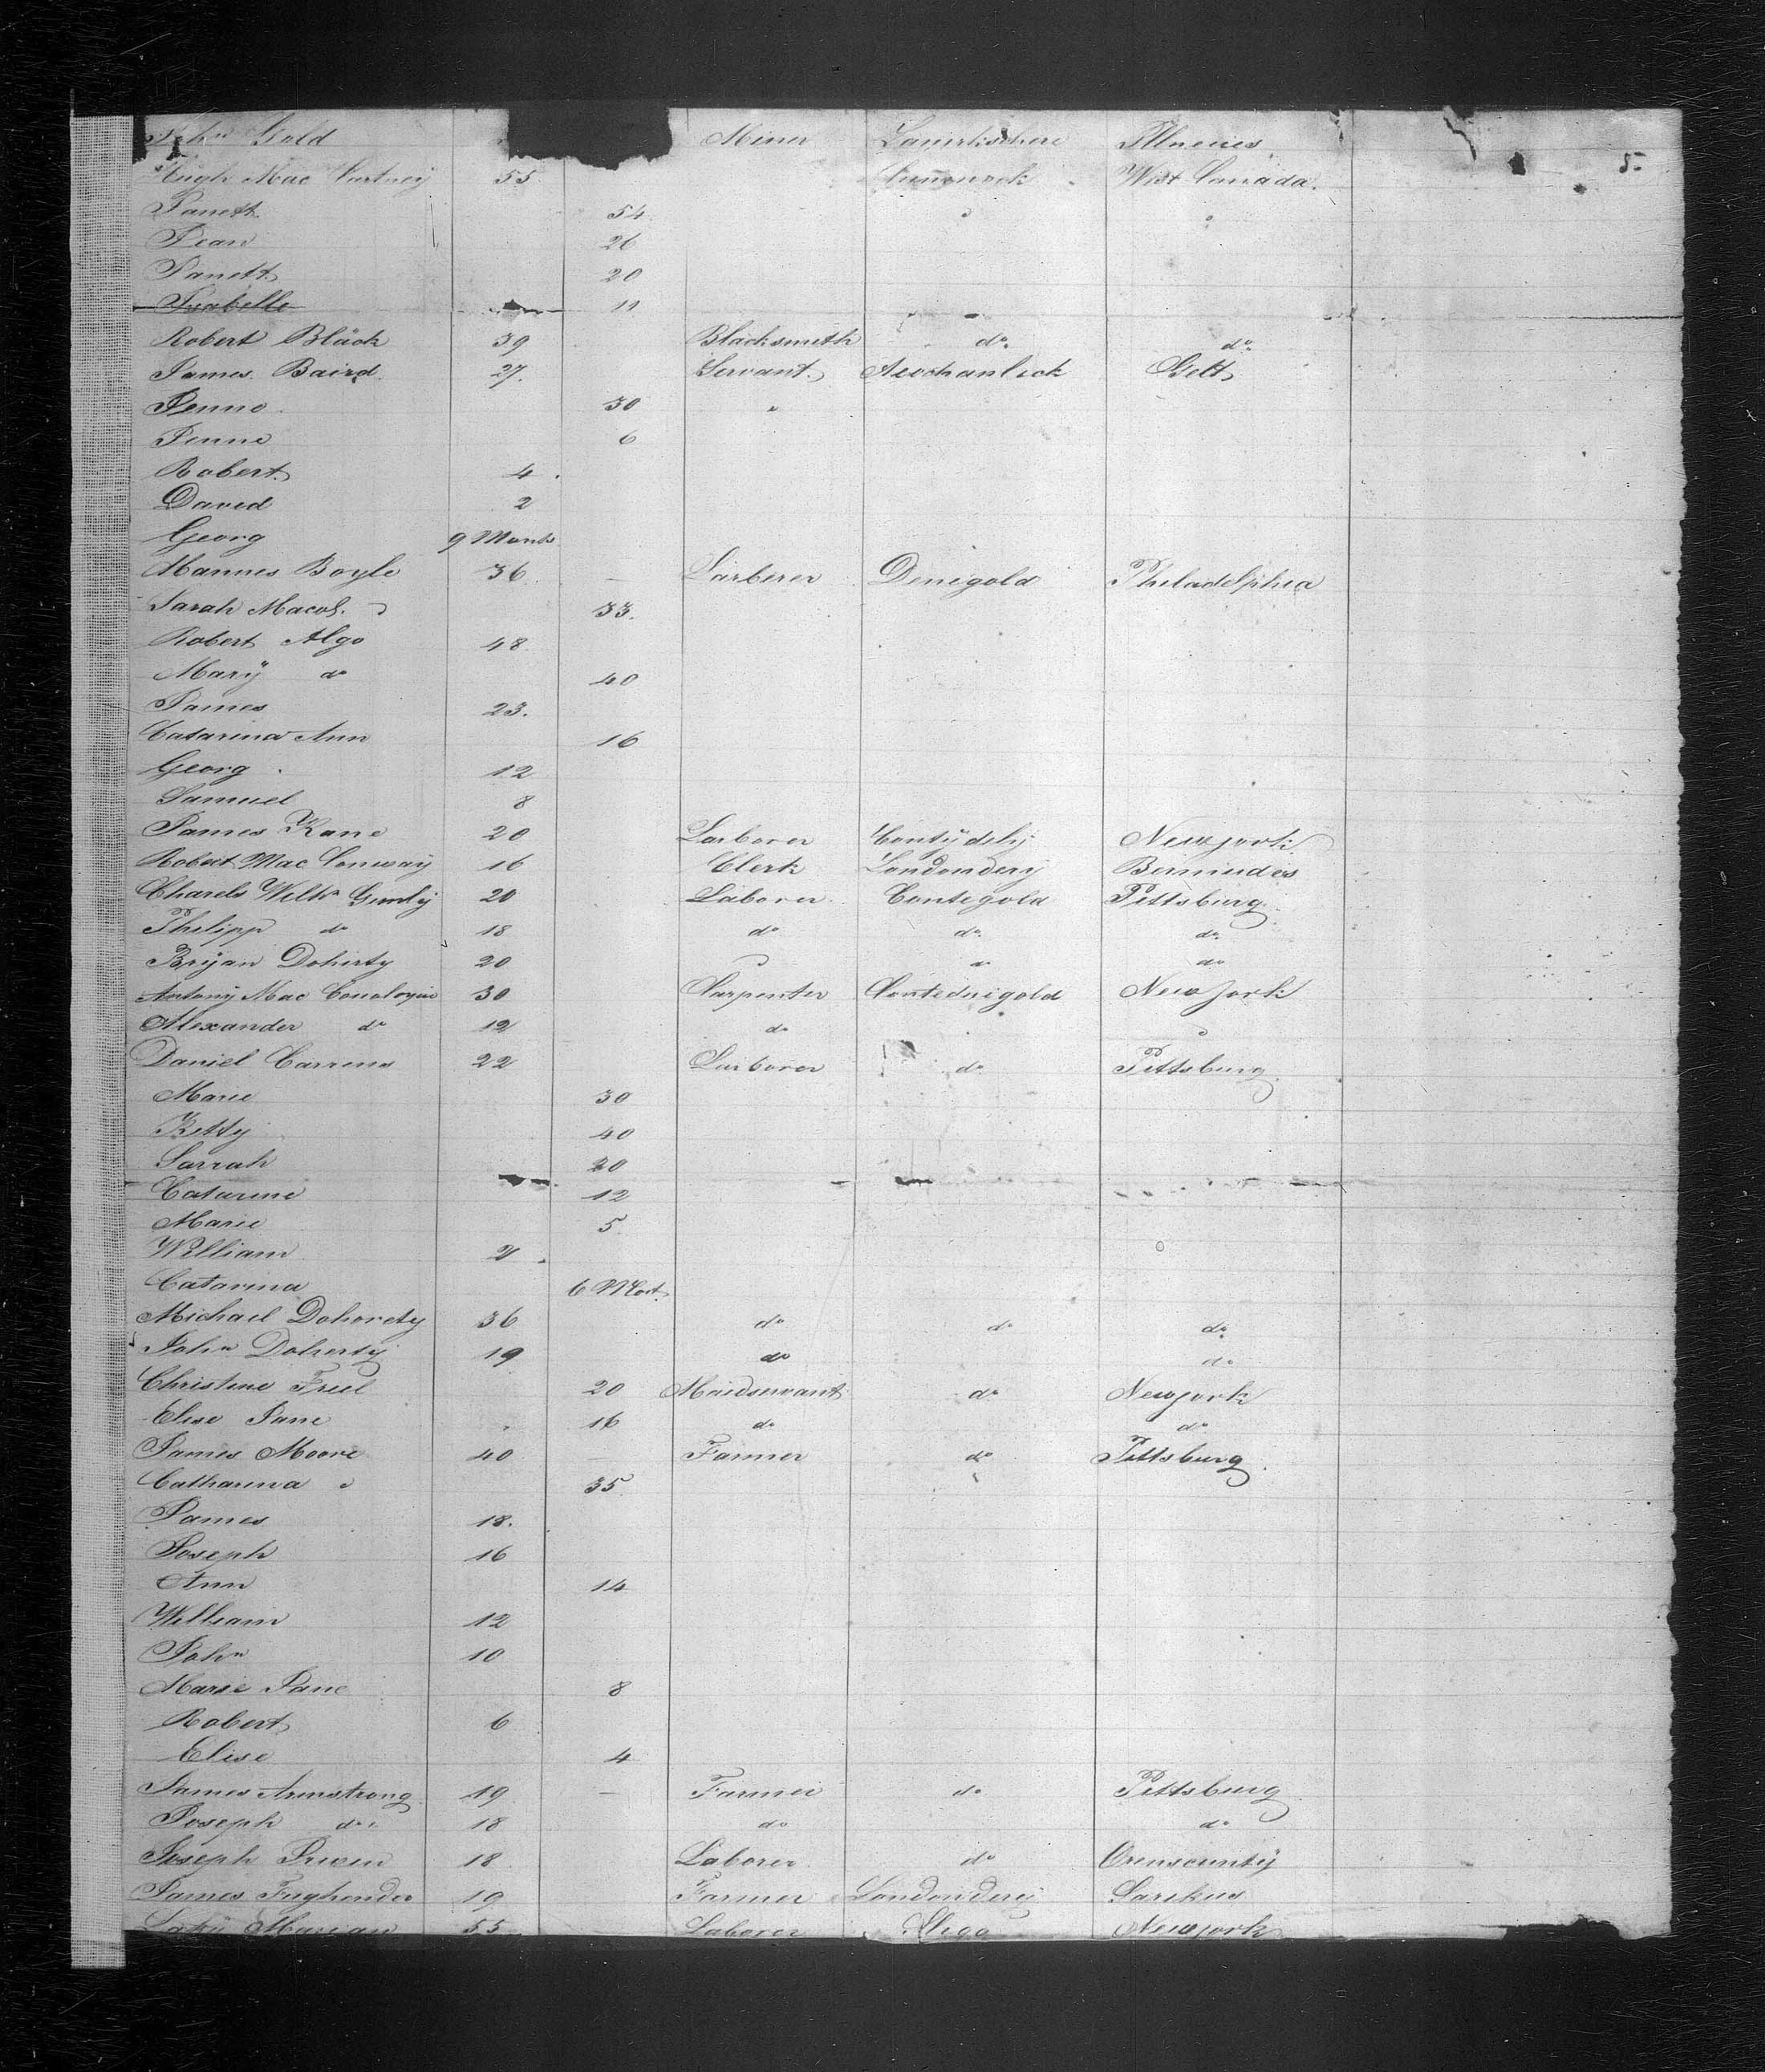 John Gold Miner Lanerkschere Illneues
5.
Hugh Mac Cartney 55 Cumenock West Canada.
Janett 54
Jean 26
Janett 20
Isabelle 11
Robert Bläck 39 Blacksmith do do
James Baird 27. Servant Auchanleck Gelt
Jenne 30
Jenne 6
Robert 4
David 2
Georg 9 Monts
Mannes Boyle 36 Larberer Denigold Philadelphia
Sarah 33.
Robert Algo 48
Marÿ do 40
James 23.
Catarina Ann 16
Georg 12
Samuel 8
James Kane 20 Larborer Newjork
Robert Mac Conway 16 Clerk Londondery Bermudes
Charels Willm 20 Laborer Contegold Pittsburg
Philipp do 18 do do do
Brÿan Doherty 20 do
Antonÿ Mac Conologue 30 Carpenter Contednigold New Jork
Alexander do 12 do
Daniel Carrens 22 Larborer do Pittsburg
Marie 30
Betty 40
Sarrah 20
Catarine 12
Marie 5
William 2
Catarina 6 Mont
Michael Dohorety 36 do do do
John Doherty 19 do do
Christine Freel 20 Maidservant do Newjork
Elise Jane 16 do do
James Moore 40 Farmer do Pittsburg
Catharina 35
James 18.
Joseph 16
Ann 14
William 12
John 10
Marie Jane 8
Robert 6
Elise 4
James Armstrong 19 Farmer do Pittsburg
Joseph do 18 do do
Joseph 18 Laborer do Orenscuntÿ
James Fughender 19 Farmer Londonderÿ
Marian 55 Laborer Sligo Newjork